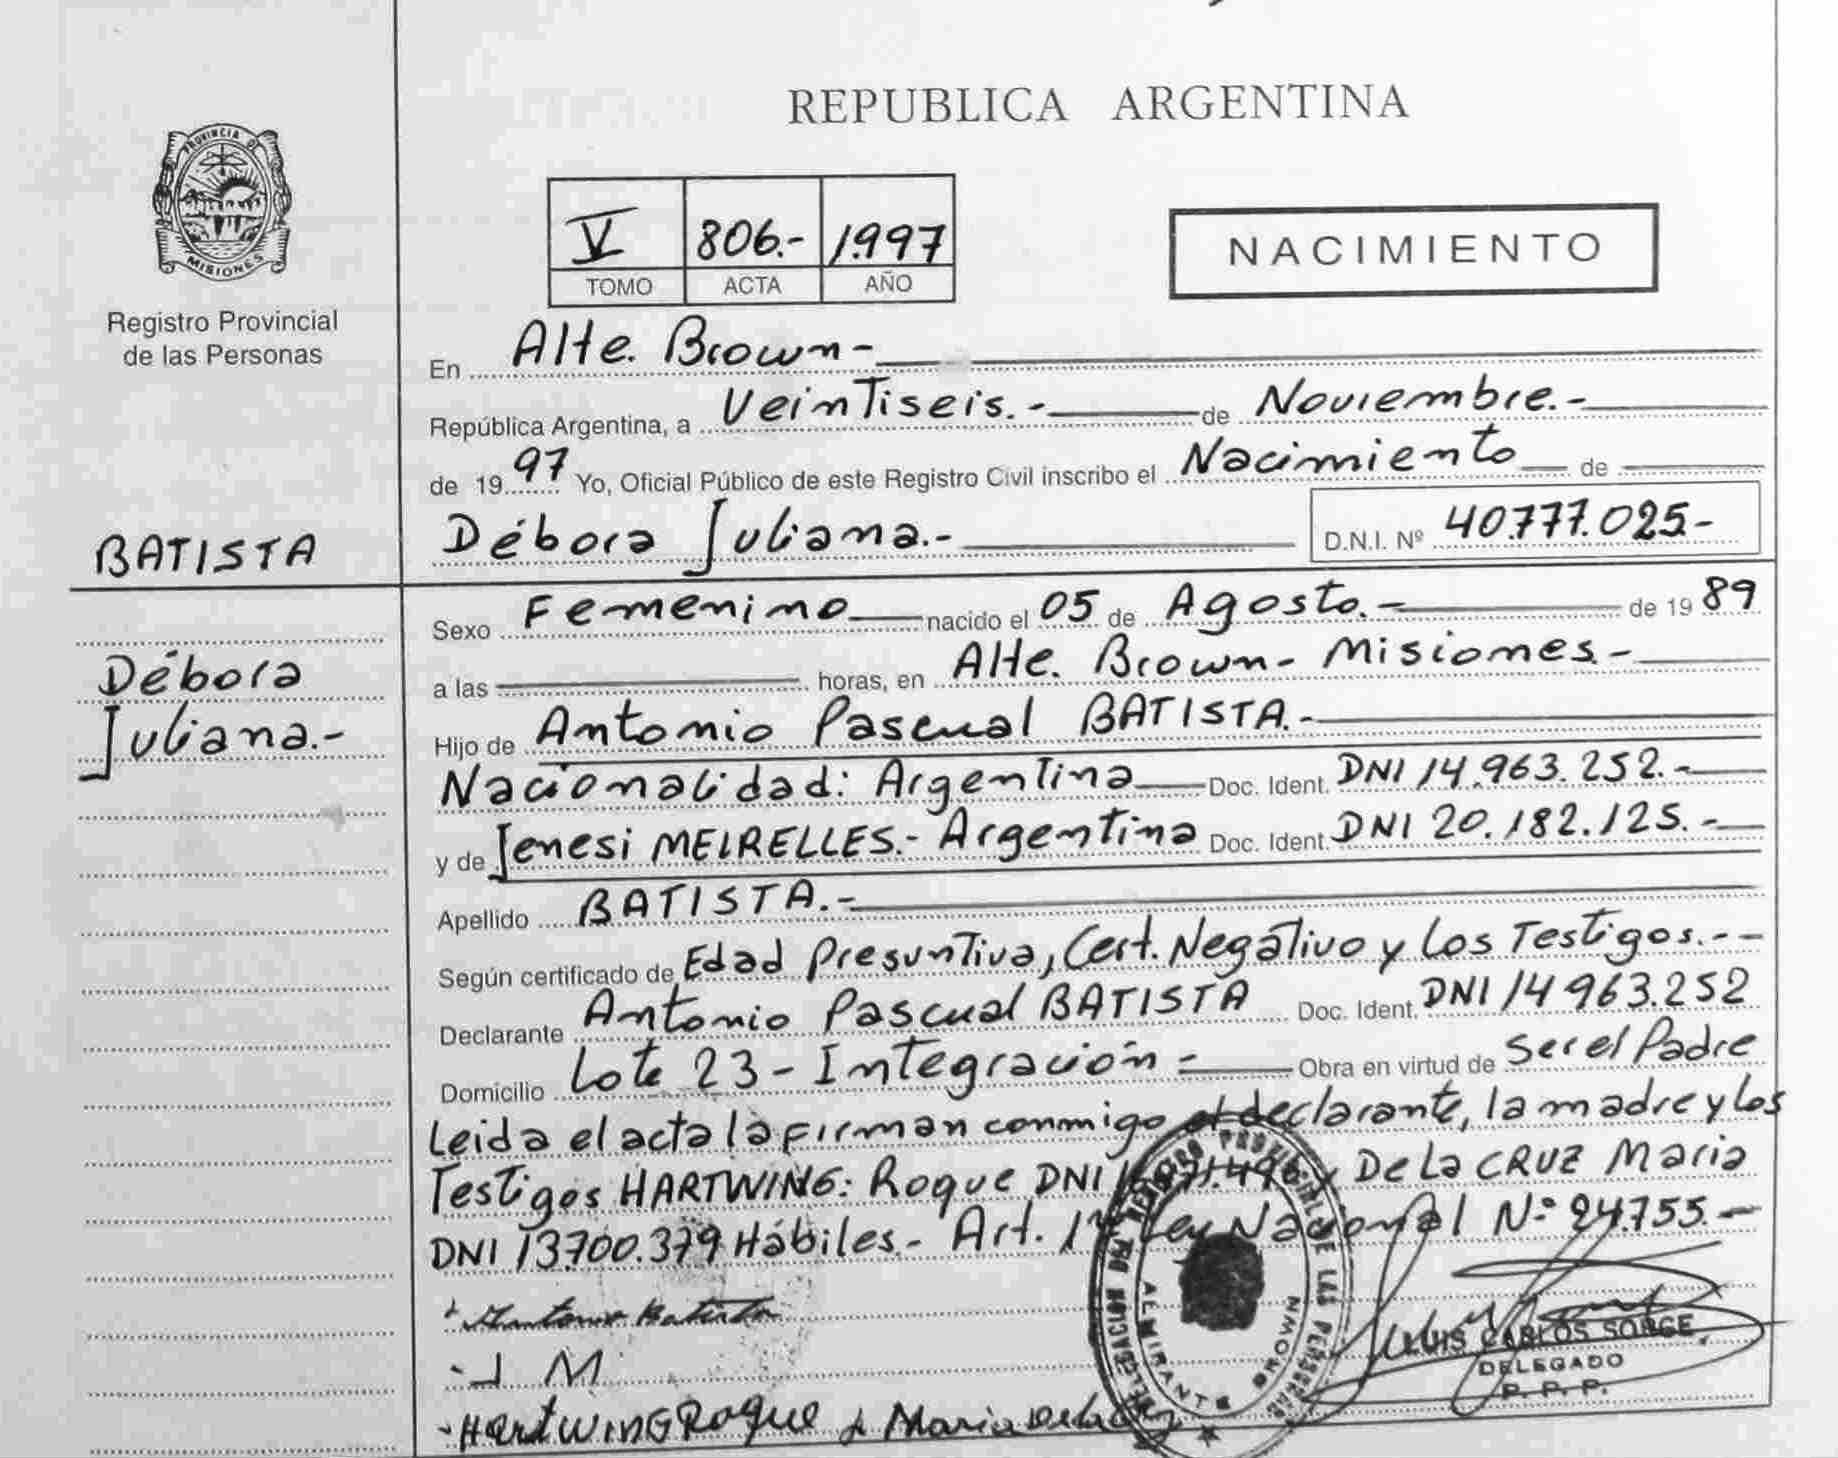 REPUBLICA ARGENTINA
PROVINCIA DE MISIONES
Registro Provincial
de las Personas
V 806.- 1.997
TOMO ACTA AÑO
NACIMIENTO
En Alte. Brown-
República Argentina, a Veintiseis.- de Noviembre.-
de 1997 Yo, Oficial Público de este Registro Civil inscribo el Nacimiento de
Débora Juliana.- D.N.I. Nº 40.777.025.-
BATISTA
Débora
Juliana.-
Sexo Femenino nacido el 05 de Agosto.- de 1989
a las horas, en Alte. Brown- Misiones.-
Hijo de Antonio Pascual BATISTA.-
Nacionalidad: Argentina Doc. Ident. DNI 14.963.252.-
y de Jenesi MEIRELLES.- Argentina Doc. Ident. DNI 20.182.125.-
Apellido BATISTA.-
Según certificado de Edad Presuntiva, Cert. Negativo y Los Testigos.--
Declarante Antonio Pascual BATISTA Doc. Ident. DNI 14 963.252
Domicilio Lote 23- Integración- Obra en virtud de Ser el Padre
Leida el acta la firman conmigo el declarante, la madre y los
Testigos HARTWING: Roque DNI y De La CRUZ Maria
DNI 13.700.379 Hábiles.- Art. 1º Ley Nacional N° 24.755.-
Antonio Batista
J M
HartWinG Roque Maria De la
DELEGACION DEL REGISTRO PROVINCIAL DE LAS PERSONAS
ALMIRANTE BROWN
LUIS CARLOS SORGE
DELEGADO
P. P. P.